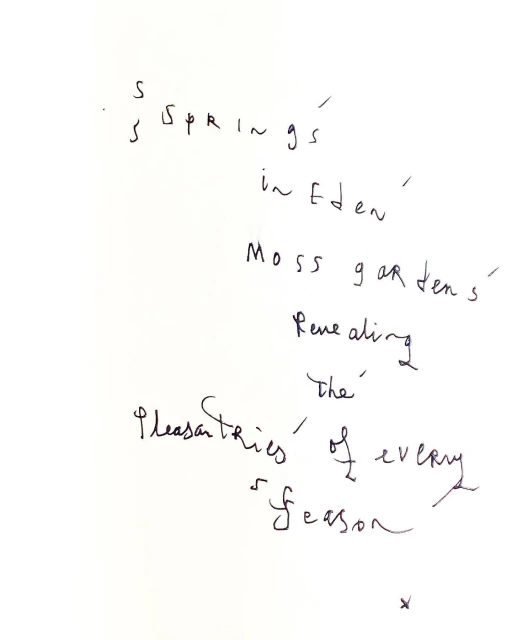 S
S Springs
in Eden
Moss gardens
Revealing
The
Pleasantries of every
Season
x